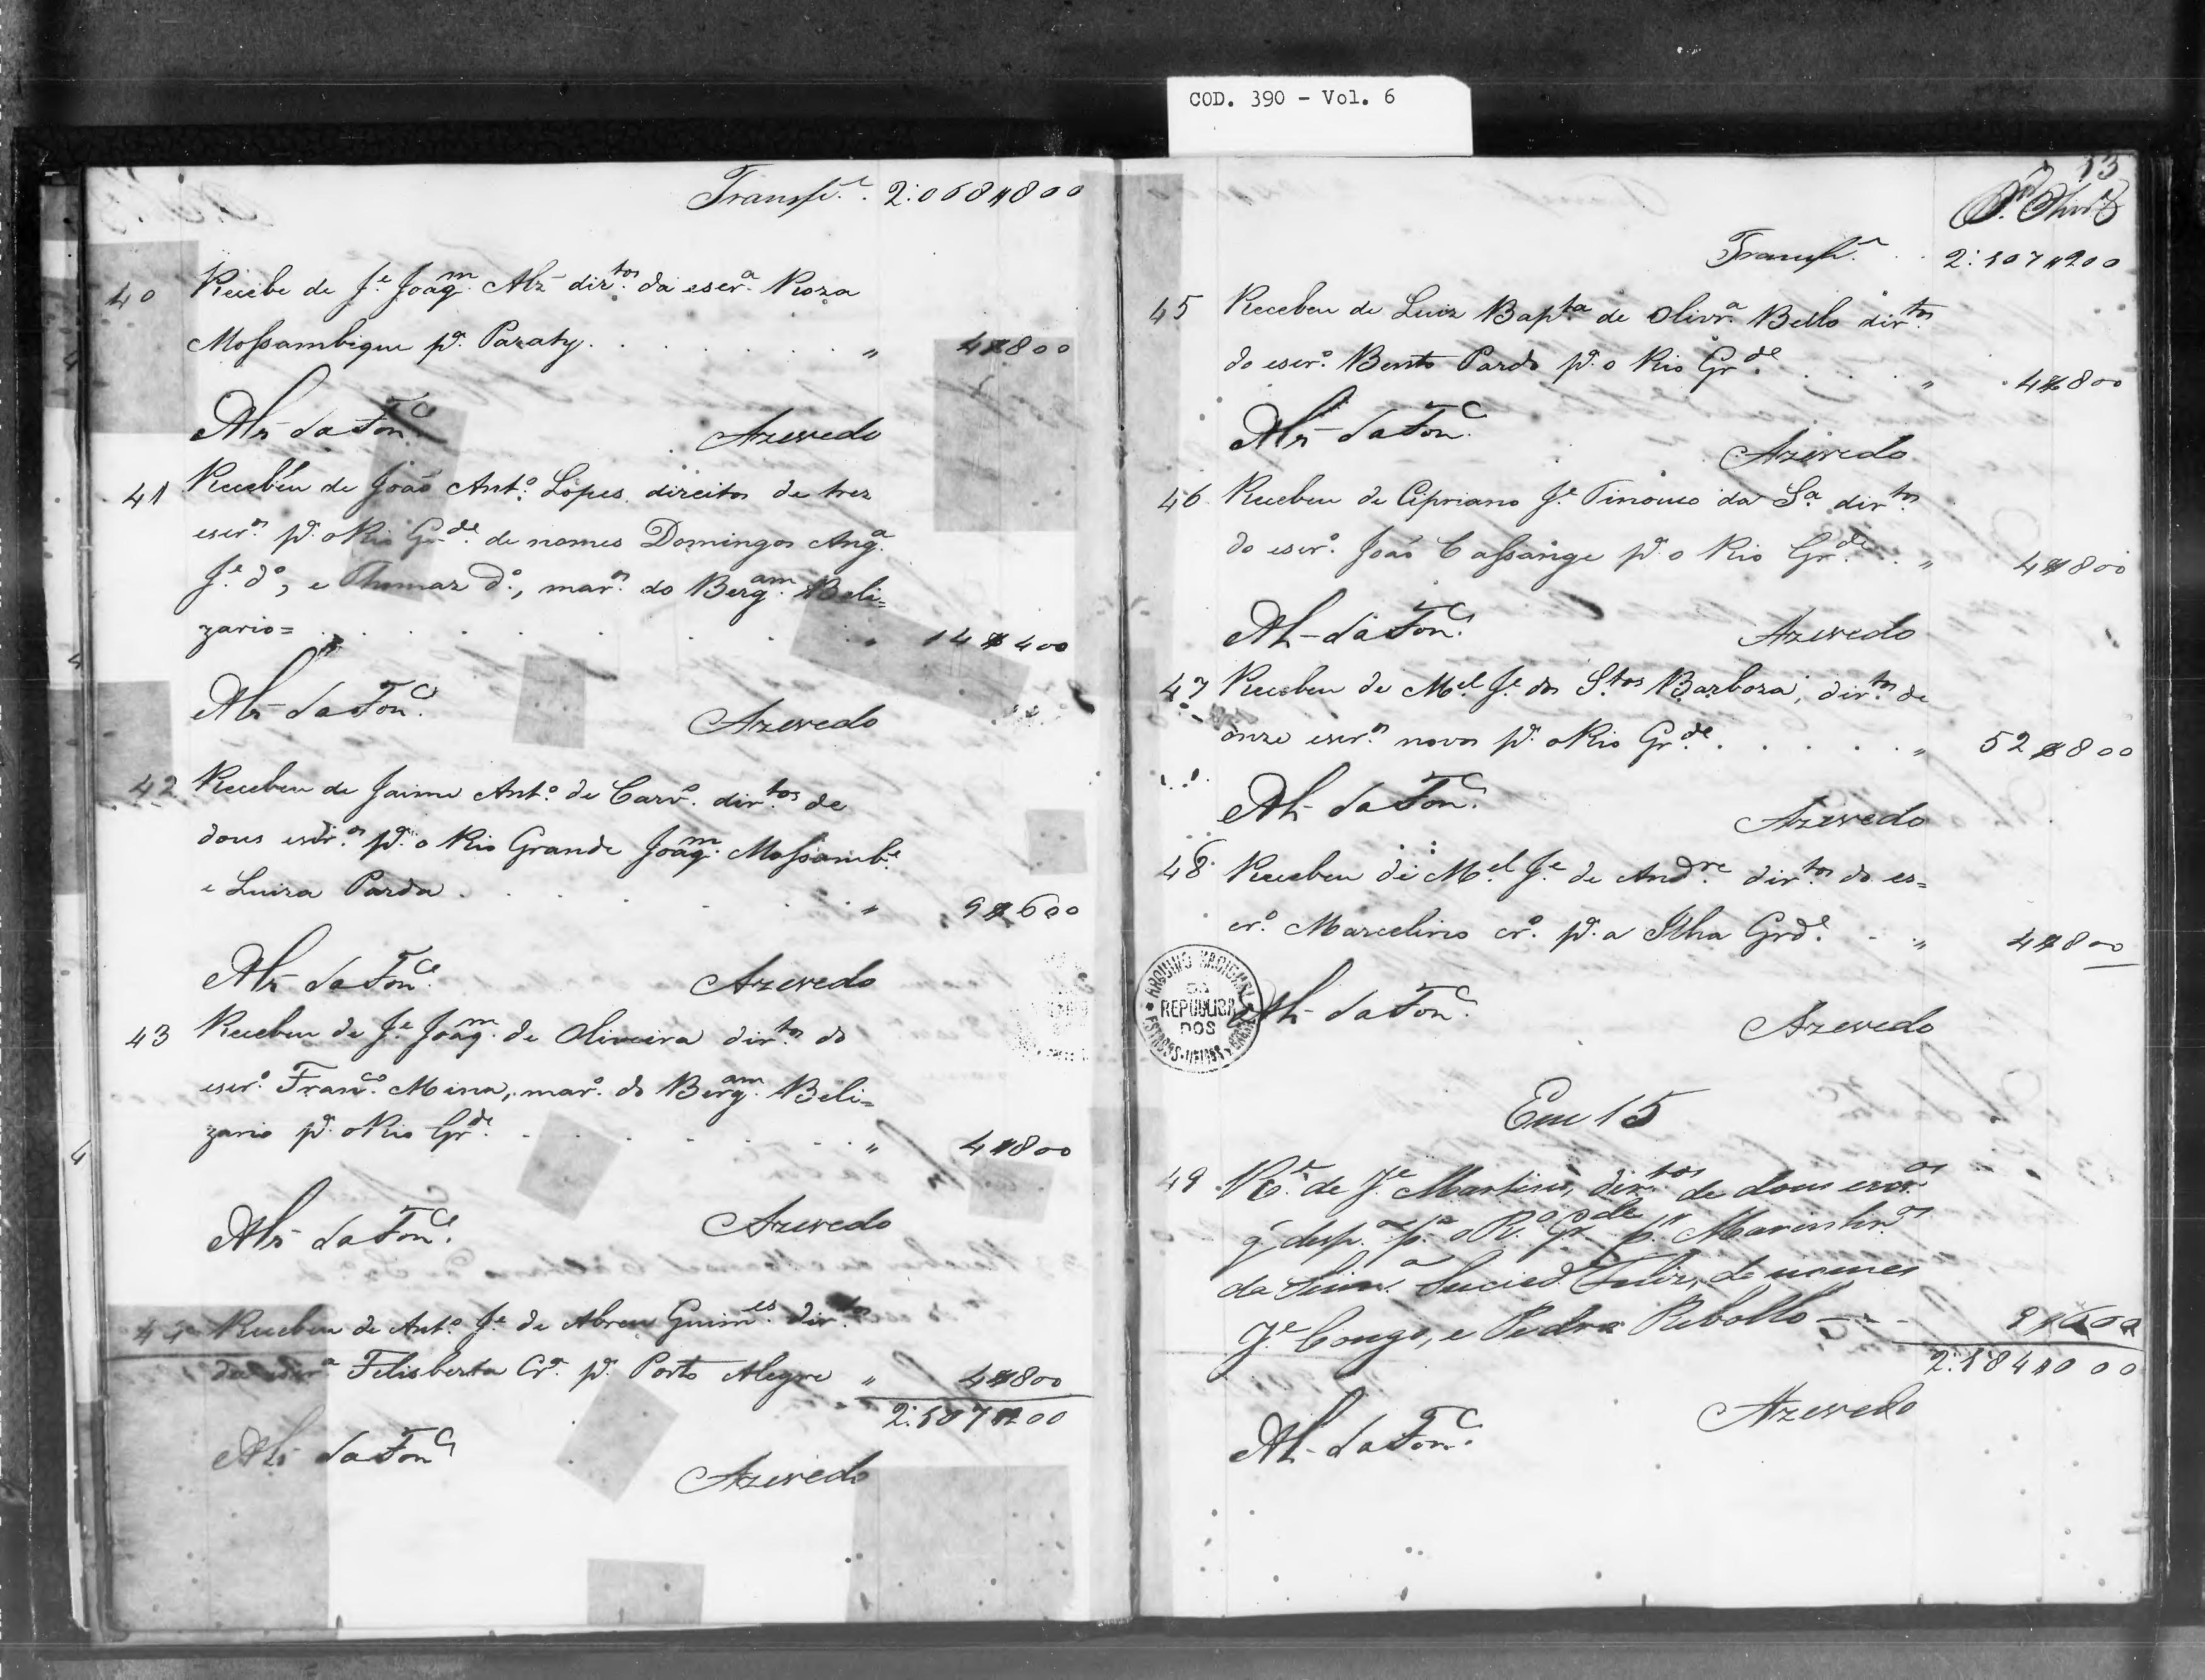 COD. 390 - Vol. 6
Transpe. 2:068$800
40 Recebe de Je. Joaqm. Alz dirtos. da escra. Roza
Mossambique pa. Paraty . . . . . . . " 4$800
Alz da Fonca. Azevedo
41 Recebeu de João Anto. Lopes direitos de trez
escros. pa. o Rio Gde. de nomes Domingos Anga.
Je. do, e Thomaz do., maros. do Bergam. Beli=
zario= . . . . . . . " 14$400
Alz da Fonca. Azevedo
42 Recebeu de Jaime Anto. de Carvo. dirtos. de
dous escros. pa. o Rio Grande Joaqm. Mossambe.
e Luiza Parda . . . . . . " 9$600
Alz da Fonca. Azevedo
43 Recebeu de Je. Joaqm. de Oliveira dirtos. do
escro. Franco. Mina, maro. do Bergam. Beli=
zario pa. o Rio Grde. . . . . . . " 4$800
Alz da Fonca. Azevedo
44 Recebeu de Anto. Je. de Abreu Guimes. dirtos.
da escra. Felisberta Cra. pa. Porto Alegre " 4$800
2:107$200
Alz da Fonca. Azevedo
13
Transpe. . . 2:107$200
45 Recebeu de Luiz Bapta. de Olivra. Bello dirtos.
do escro. Bento Pardo pa. o Rio Grde. . . . " 4$800
Alz da Fonca. Azevedo
46 Recebeu de Cipriano Je. Tinouco da Sa. dirtos.
do escro. João Cassange pa. o Rio Grde. . . " 4$800
Alz da Fonca. Azevedo
47 Recebeu de Mel. Je. dos Stos. Barboza, dirtos. de
onze escros. novos pa. o Rio Grde. . . . . . " 52$800
Alz da Fonca. Azevedo
48 Recebeu de Mel. Je. de Andre. dirtos. do es=
cro. Marcelino cro. pa. a Ilha Grde. . . " 4$800
ARQUIVO NACIONAL
DA
REPUBLICA
DOS
ESTADOS UNIDOS
Alz da Fonca. Azevedo
Em 15
49 Re. de Je. Martins, dirtos. de dous escros.
q desp. pa. o Ro. Grde. pr. Marinhros.
da Suma. Socied. Feliz, de nomes
Je. Congo, e Pedro Rebollo — . . 9$600
2:184$000
Alz da Fonca. Azevedo